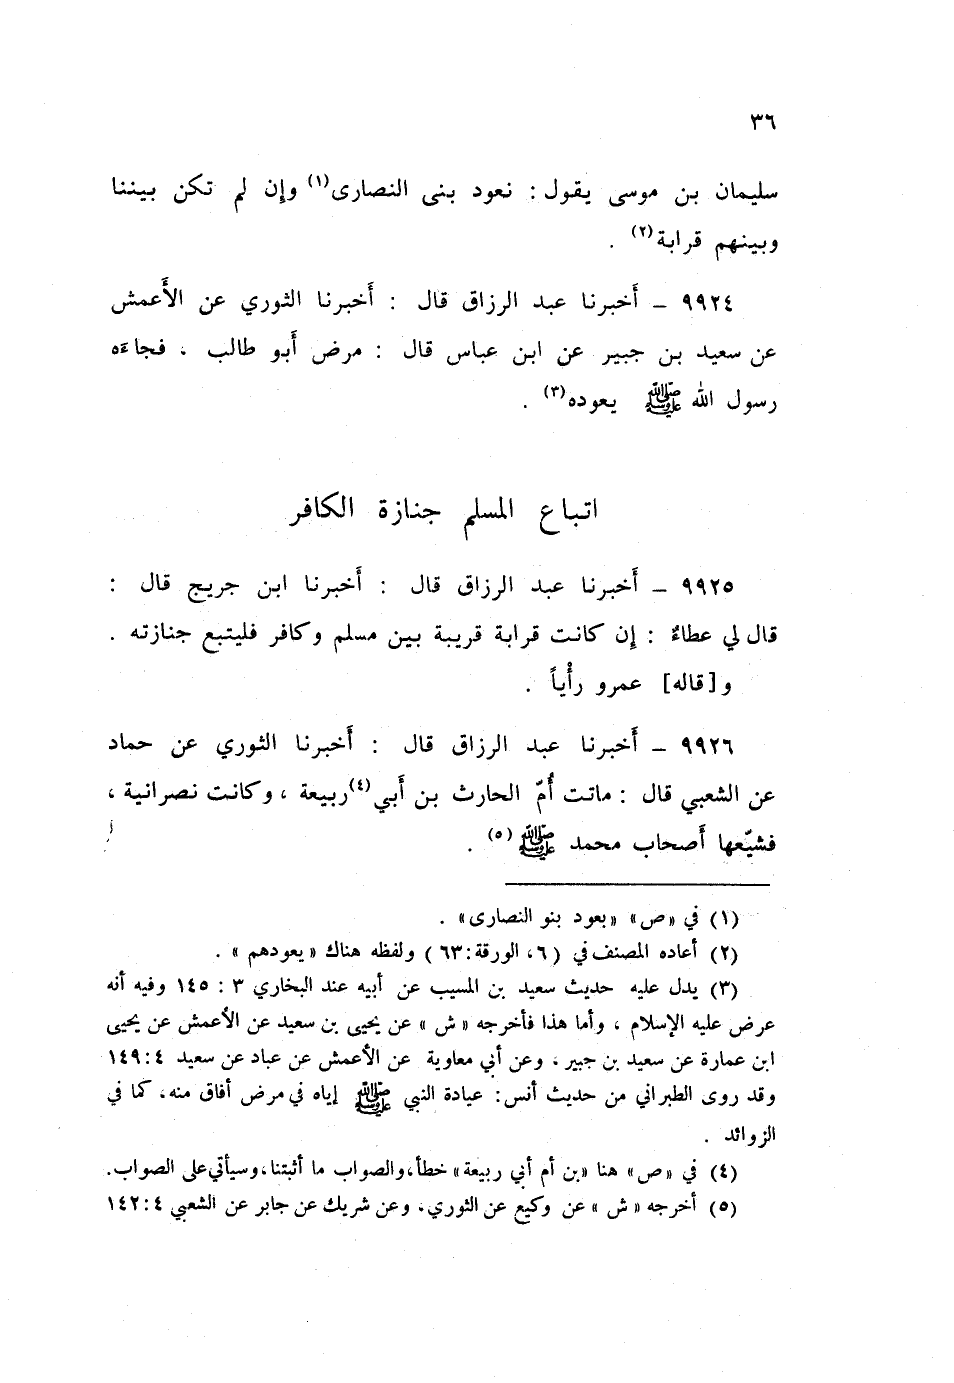 ٣٦
سليمان بن موسى يقول : نعود بنى النصارى(١) وإن لم تكن بيننا
وبينهم قرابة(٢) .
٩٩٢٤ – أخبرنا عبد الرزاق قال : أخبرنا الثوري عن الأعمش
عن سعيد بن جبير عن ابن عباس قال : مرض أبو طالب ، فجاءه
رسول الله ﷺ يعوده(٣) .
اتباع المسلم جنازة الكافر
٩٩٢٥ – أخبرنا عبد الرزاق قال : أخبرنا ابن جريج قال :
قال لي عطاءٌ : إن كانت قرابة قريبة بين مسلم وكافر فليتبع جنازته .
و[قاله] عمرو رأْياً .
٩٩٢٦ – أخبرنا عبد الرزاق قال : أخبرنا الثوري عن حماد
عن الشعبي قال : ماتت أُمّ الحارث بن أَبي(٤)ربيعة ، وكانت نصرانية ،
فشيّعها أَصحاب محمد ﷺ(٥) .
(١) في «ص» «بعود بنو النصارى» .
(٢) أعاده المصنف في (٦، الورقة:٦٣) ولفظه هناك «يعودهم» .
(٣) يدل عليه حديث سعيد بن المسيب عن أبيه عند البخاري ٣ : ١٤٥ وفيه أنه
عرض عليه الإسلام ، وأما هذا فأخرجه «ش» عن يحيى بن سعيد عن الأعمش عن يحيى
ابن عمارة عن سعيد بن جبير ، وعن أبي معاوية عن الأعمش عن عباد عن سعيد ٤:١٤٩
وقد روى الطبراني من حديث أنس : عيادة النبي ﷺ إياه في مرض أفاق منه، كما في
الزوائد .
(٤) في «ص» هنا «بن أم أبي ربيعة» خطأ،والصواب ما أثبتنا،وسيأتي على الصواب.
(٥) أخرجه «ش» عن وكيع عن الثوري، وعن شريك عن جابر عن الشعبي ٤:١٤٢